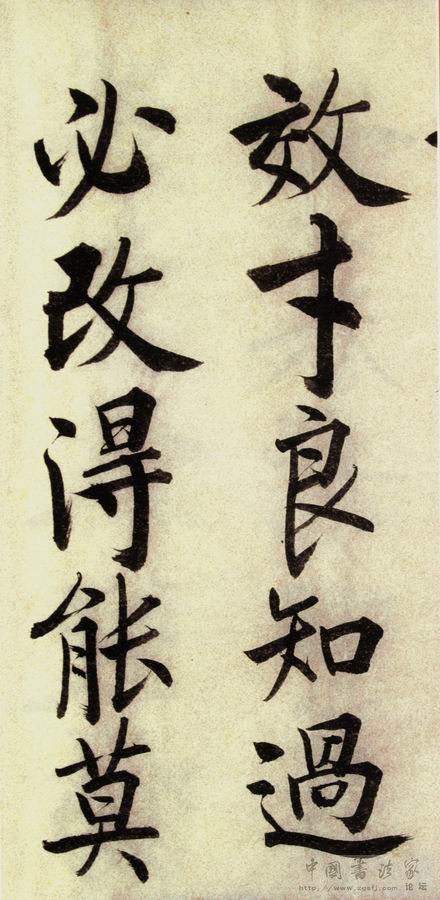 效才良知過
必改得能莫
中國書法家
论坛
http://www.zgsfj.com